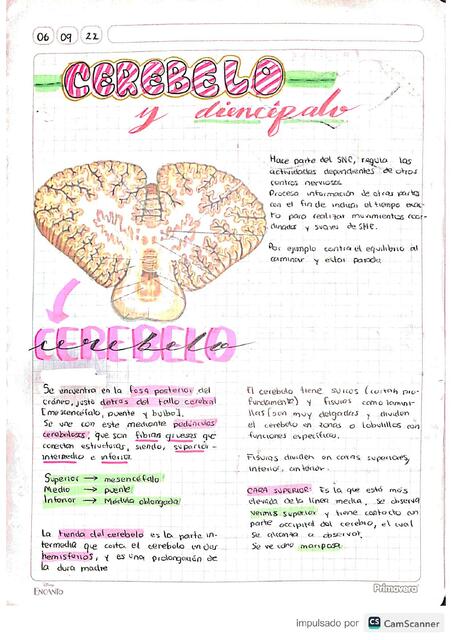 06 09 22
CEREBELO
y diencéfalo
Hace parte del SNC, regula las
actividades dependientes de otros
centros nerviosos
Procesa información de otras partes
con el fin de indicar el tiempo exac-
to para realizar movimientos coor-
dinados y suaves de SME.
Por ejemplo control el equilibrio al
caminar y estar parado.
cerebelo
CEREBELO
Se encuentra en la fosa posterior del
cráneo, justo detras del tallo cerebral
[mesencéfalo, puente y bulbo].
Se une con este mediante pedúnculos
cerebelosos, que son fibras gruesas que
conectan estructuras, siendo, superior-
intermedio e inferior.
Superior → mesencéfalo
Medio → puente
Inferior → Médula oblongada
La tienda del cerebelo es la parte in-
termedia que corta el cerebelo en dos
hemisferios, y es una prolongación de
la dura madre
El cerebelo tiene surcos (cortan pro-
fundamente) y fisuras como lamini-
llas (son muy delgadas y dividen
el cerebelo en zonas o lobulillos con
funciones específicas.
Fisuras dividen en caras superiores,
inferior, anterior.
CARA SUPERIOR: Es la que está más
elevada de la línea media. Se observa
vermis superior y tiene contacto con
parte occipital del cerebro, el cual
se alcanza a observar.
Se ve como mariposa.
Disney
ENCANTO
Primavera
impulsado por CS CamScanner